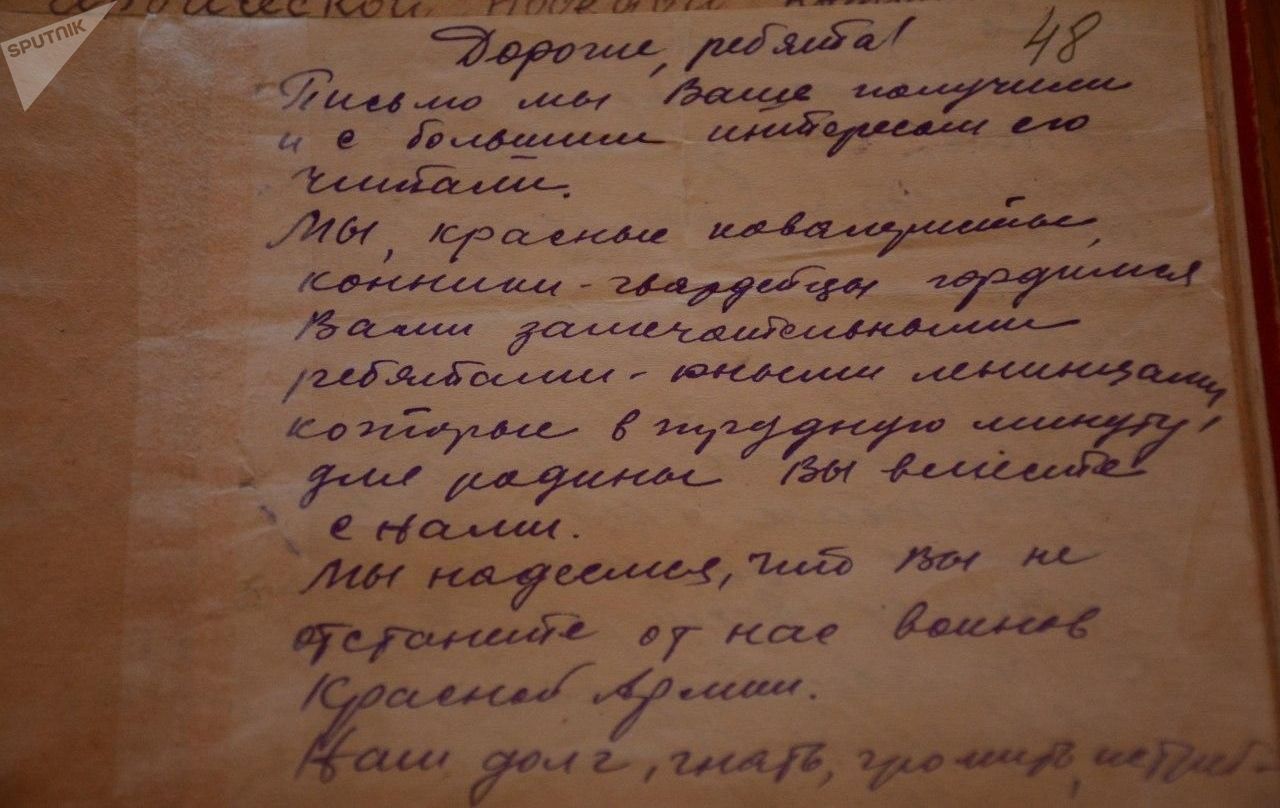 SPUTNIK
48
Дорогие, ребята!
Письмо мы Ваше получили
и с большим интересом его
читали.
Мы, красные ковалеристы,
конники-гвардейцы гордимся
Вами замечательными
ребятами - юными ленинцами,
которые в трудную минуту,
для родины Вы вместе
с нами.
Мы надеемся, что Вы не
отстаните от нас воинов
Красной Армии.
Наш долг, гнать, громить, истреб-